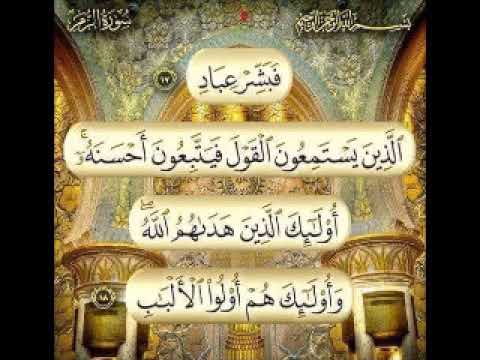 بسم الله الرحمن الرحيم
سورة الزمر
فَبَشِّرْ عِبَادِ ١٧
ٱلَّذِينَ يَسْتَمِعُونَ ٱلْقَوْلَ فَيَتَّبِعُونَ أَحْسَنَهُۥٓ ۚ
أُو۟لَـٰٓئِكَ ٱلَّذِينَ هَدَىٰهُمُ ٱللَّهُ ۖ
وَأُو۟لَـٰٓئِكَ هُمْ أُو۟لُوا۟ ٱلْأَلْبَـٰبِ ١٨